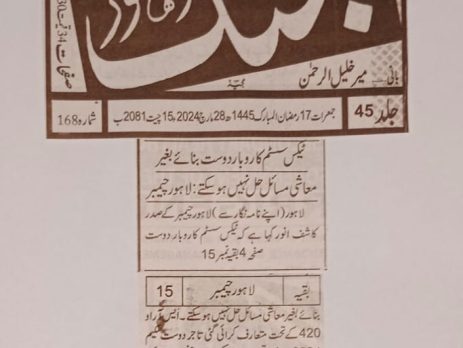 جنگ
لاہور
صفحات 34 قیمت 30
بانی میر خلیل الرحمٰن
جلد 45
جمعرات 17 رمضان المبارک 1445ھ 28 مارچ 2024ء 15 چیت 2081ب
شمارہ 168
ٹیکس سسٹم کاروبار دوست بنائے بغیر
معاشی مسائل حل نہیں ہو سکتے: لاہور چیمبر
لاہور (اپنے نامہ نگار سے) لاہور چیمبر کے صدر
کاشف انور کہا ہے کہ ٹیکس سسٹم کاروبار دوست
صفحہ 4 بقیہ نمبر 15
بقیہ لاہور چیمبر 15
بنائے بغیر معاشی مسائل حل نہیں ہو سکتے۔ ایس آر او
420 کے تحت متعارف کرائی گئی تاجر دوست سکیم